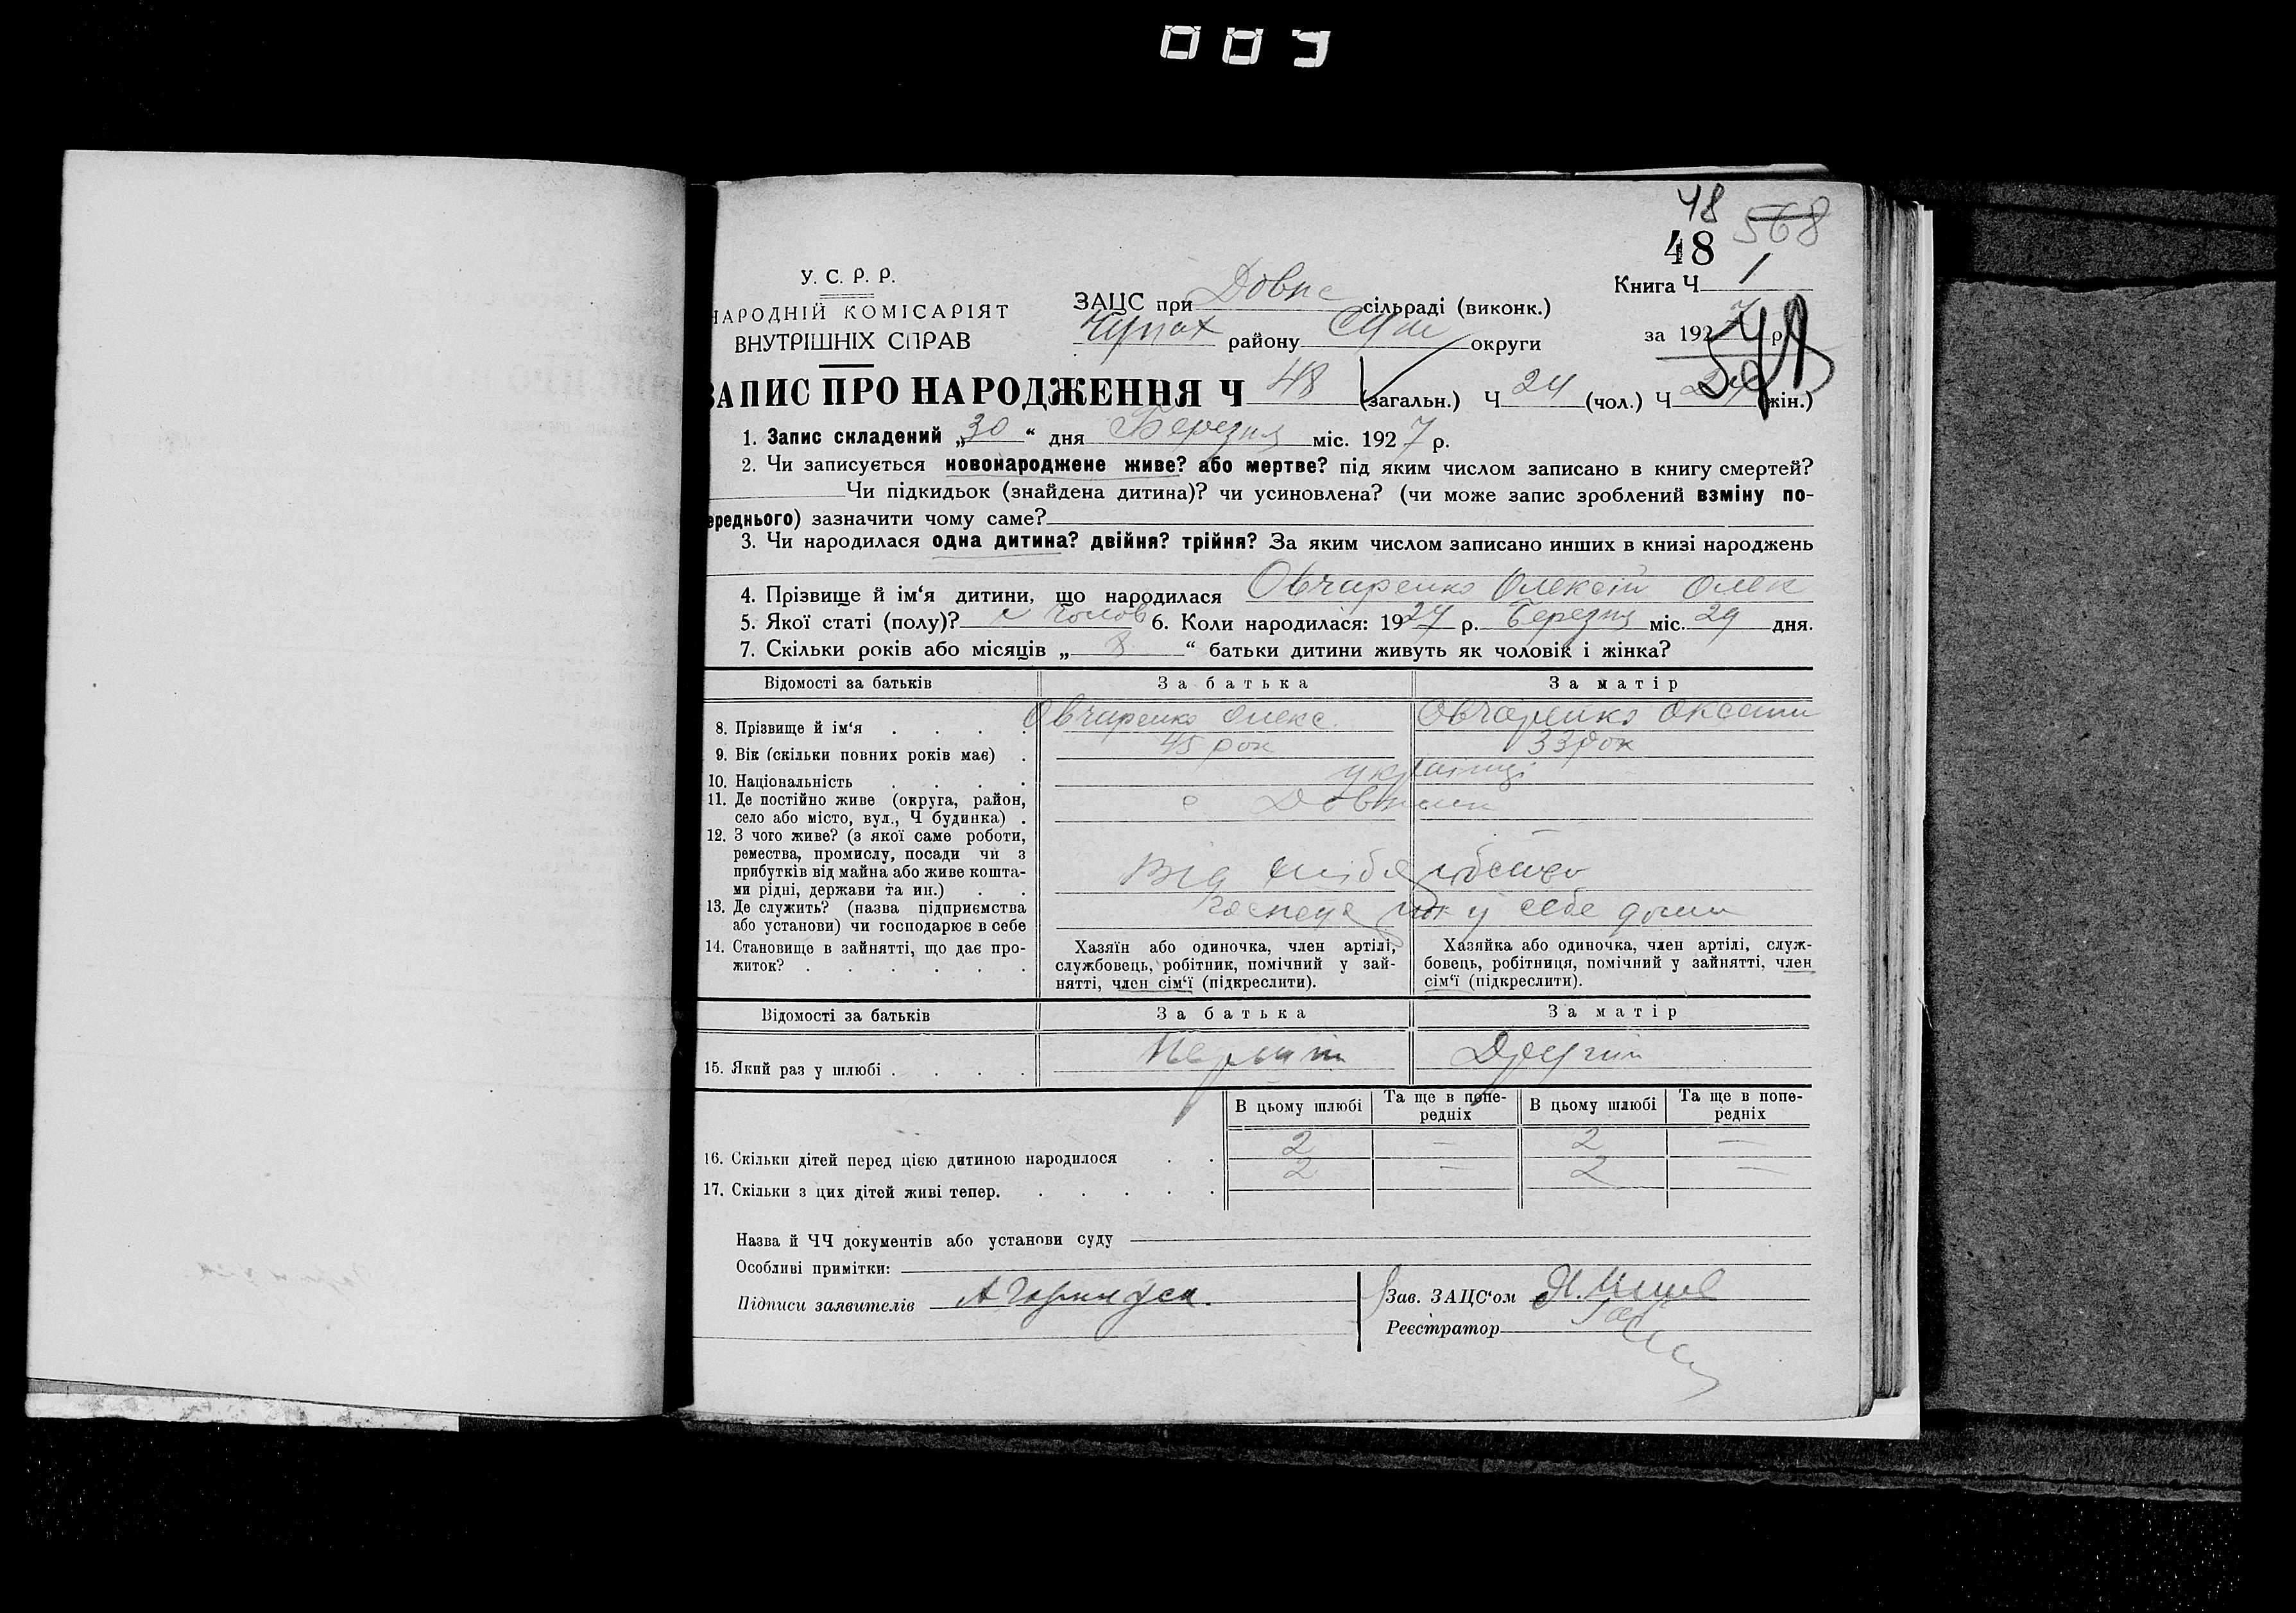 003
48 568
48
У. С. Р. Р.
НАРОДНІЙ КОМІСАРІЯТ
ВНУТРІШНІХ СПРАВ
Книга Ч 1
ЗАЦС при Довж сільраді (виконк.)
району Сум округи
за 1927 р.
ЗАПИС ПРО НАРОДЖЕННЯ Ч 48 (загальн.) Ч 24 (чол.) Ч (жін.)
1. Запис складений „30“ дня Березня міс. 1927 р.
2. Чи записується новонароджене живе? або мертве? під яким числом записано в книгу смертей?
Чи підкидьок (знайдена дитина)? чи усиновлена? (чи може запис зроблений взміну по-
ереднього) зазначити чому саме?
3. Чи народилася одна дитина? двійня? трійня? За яким числом записано инших в книзі народжень
4. Прізвище й ім‘я дитини, що народилася Овчаренко Олексій Олек
5. Якої статі (полу)? чолов 6. Коли народилася: 1927 р. Березня міс. 29 дня.
7. Скільки років або місяців „ 8 “ батьки дитини живуть як чоловік і жінка?
Відомості за батьків За батька За матір
8. Прізвище й ім‘я . . . . Овчаренко Олекс. Овчаренко Оксани
9. Вік (скільки повних років має) . 45 рок 33 рок
10. Національність . . . . українці
11. Де постійно живе (округа, район,
село або місто, вул., Ч будинка) . с
12. З чого живе? (з якої саме роботи,
ремества, промислу, посади чи з
прибутків від майна або живе кошта-
ми рідні, держави та ин.) . . Від хліборобства
13. Де служить? (назва підприємства
або установи) чи господарює в себе у себе дома
14. Становище в зайнятті, що дає про-
житок? . . . . . .
Хазяїн або одиночка, член артілі,
службовець, робітник, помічний у зай-
нятті, член сім‘ї (підкреслити).
Хазяйка або одиночка, член артілі, служ-
бовець, робітниця, помічний у зайнятті, член
сім‘ї (підкреслити).
Відомості за батьків За батька За матір
15. Який раз у шлюбі . . . . Перший Другий
В цьому шлюбі Та ще в попе-редніх В цьому шлюбі Та ще в попе-редніх
16. Скільки дітей перед цією дитиною народилося . . 2 — 2 —
17. Скільки з цих дітей живі тепер. . . . . . 2 — 2 —
Назва й ЧЧ документів або установи суду
Особливі примітки:
Підписи заявителів
Зав. ЗАЦС‘ом
Реєстратор